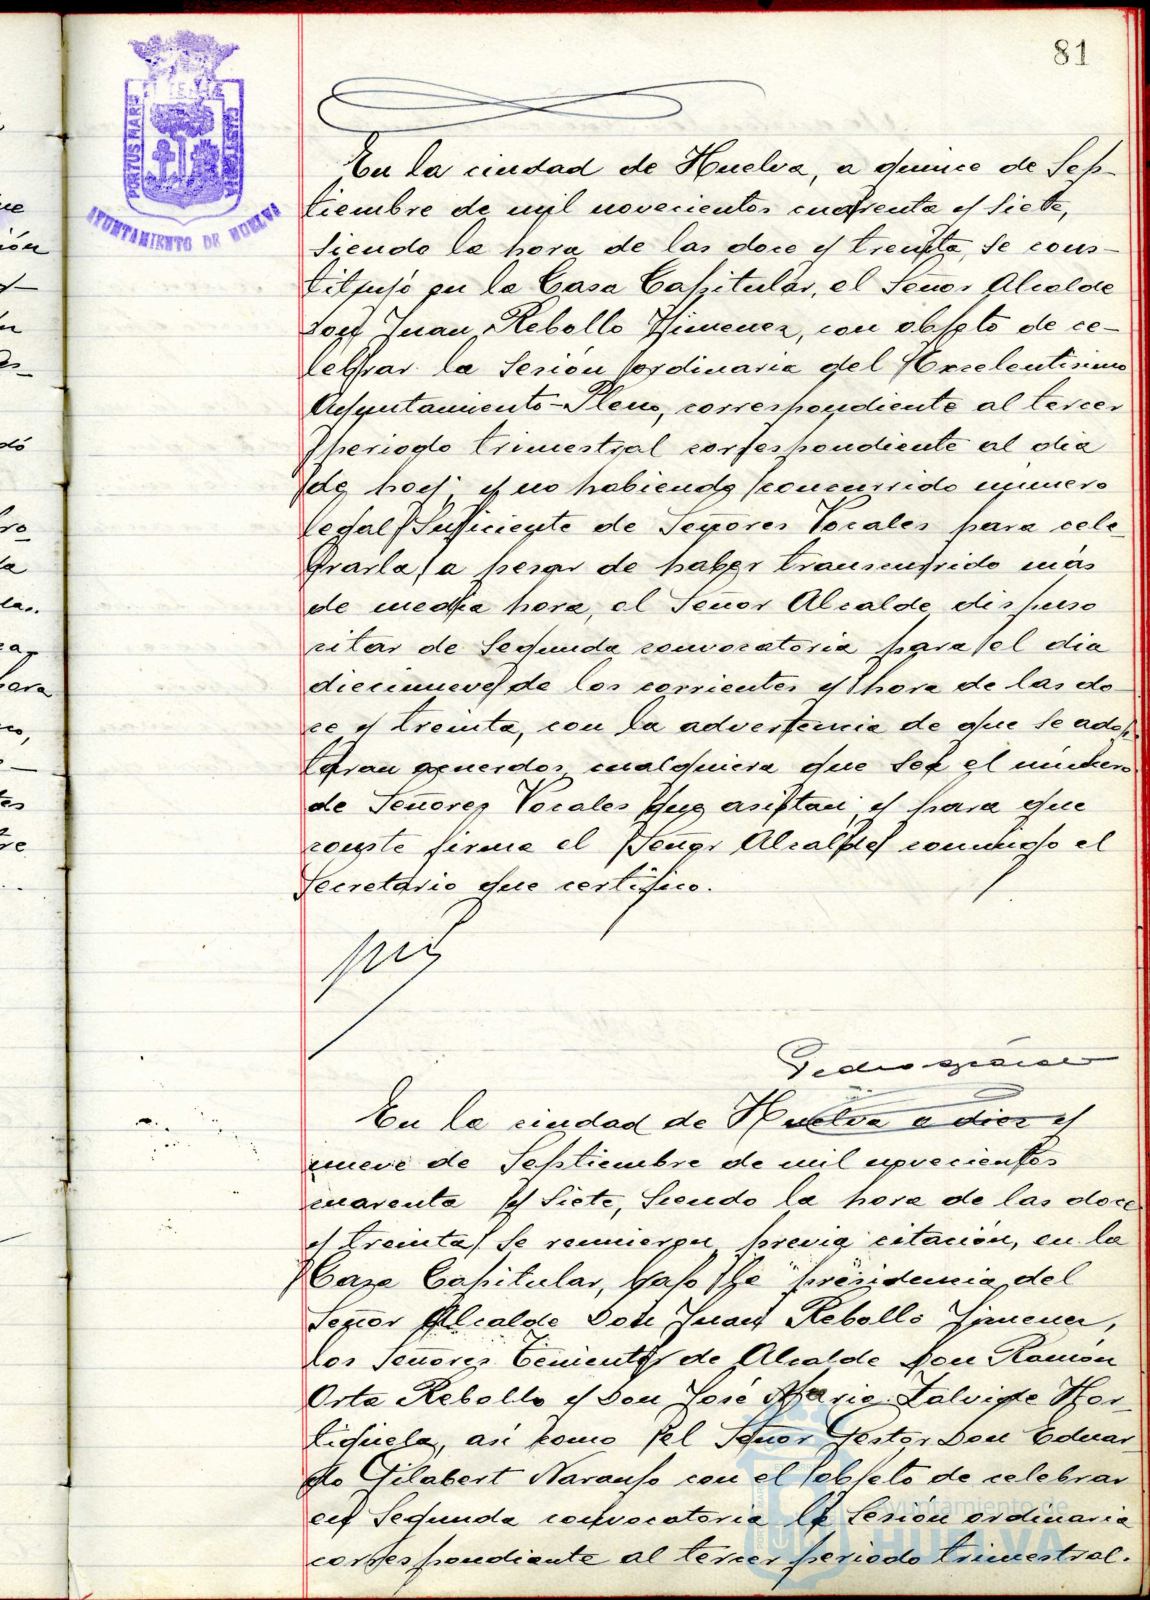 81
PORTUS MARIS ET TERRAE CUSTODIA
AYUNTAMIENTO DE HUELVA
En la ciudad de Huelva, a quince de Sep-
tiembre de mil novecientos cuarenta y siete,
siendo la hora de las doce y treinta, se cons-
tituyó en la Casa Capitular, el Señor Alcalde
Don Juan Rebollo Jimenez, con objeto de ce-
lebrar la sesión ordinaria del Excelentisimo
Ayuntamiento-Pleno, correspondiente al tercer
periodo trimestral correspondiente al dia
de hoy, y no habiendo concurrido número
legal suficiente de Señores Vocales para cele-
brarla, a pesar de haber transcurrido más
de media hora, el Señor Alcalde dispuso
citar de segunda convocatoria para el dia
diecinueve de los corrientes y hora de las do-
ce y treinta, con la advertencia de que se adop-
taran acuerdos cualquiera que sea el número
de Señores Vocales que asistan; y para que
conste firma el Señor Alcalde conmigo el
Secretario que certifico.
En la ciudad de Huelva a diez y
nueve de Septiembre de mil novecientos
cuarenta y siete, siendo la hora de las doce
y treinta, se reunieron, previa citación, en la
Casa Capitular, bajo la presidencia del
Señor Alcalde Don Juan Rebollo Jimenez,
los Señores Tenientes de Alcalde Don Ramón
Orta Rebollo y Don José María Zalvide Hor-
tigüela, así como el Señor Gestor Don Eduar-
do Gilabert Naranjo con el objeto de celebrar
en segunda convocatoria la sesión ordinaria
correspondiente al tercer periodo trimestral.
Ayuntamiento de
HUELVA